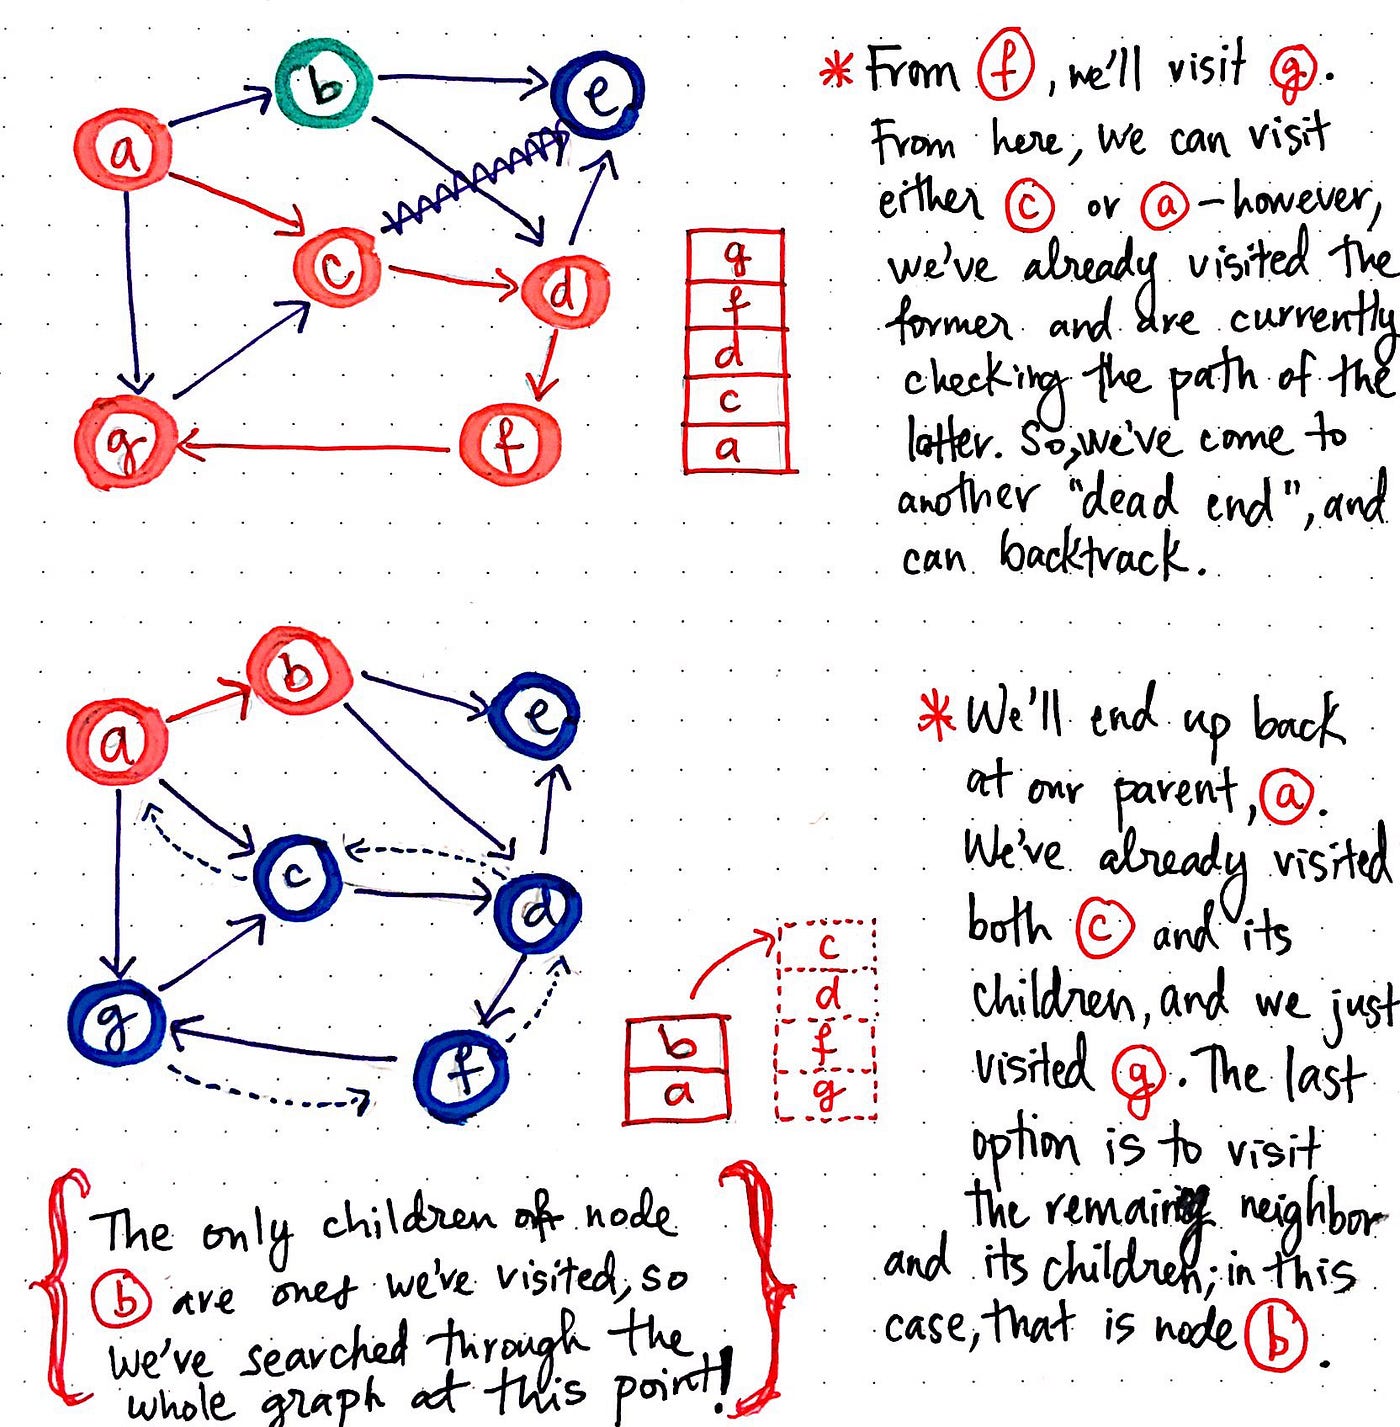 b
e
a
c
d
g
f
g
f
d
c
a
* From f, we'll visit g.
From here, we can visit
either c or a - however,
we've already visited the
former and are currently
checking the path of the
latter. So, we've come to
another "dead end", and
can backtrack.
b
a
e
c
d
g
f
b
a
c
d
f
g
* We'll end up back
at our parent, a.
We've already visited
both c and its
children, and we just
visited g. The last
option is to visit
the remaining neighbor
and its children; in this
case, that is node b.
The only children of node
b are ones we've visited, so
we've searched through the
whole graph at this point!